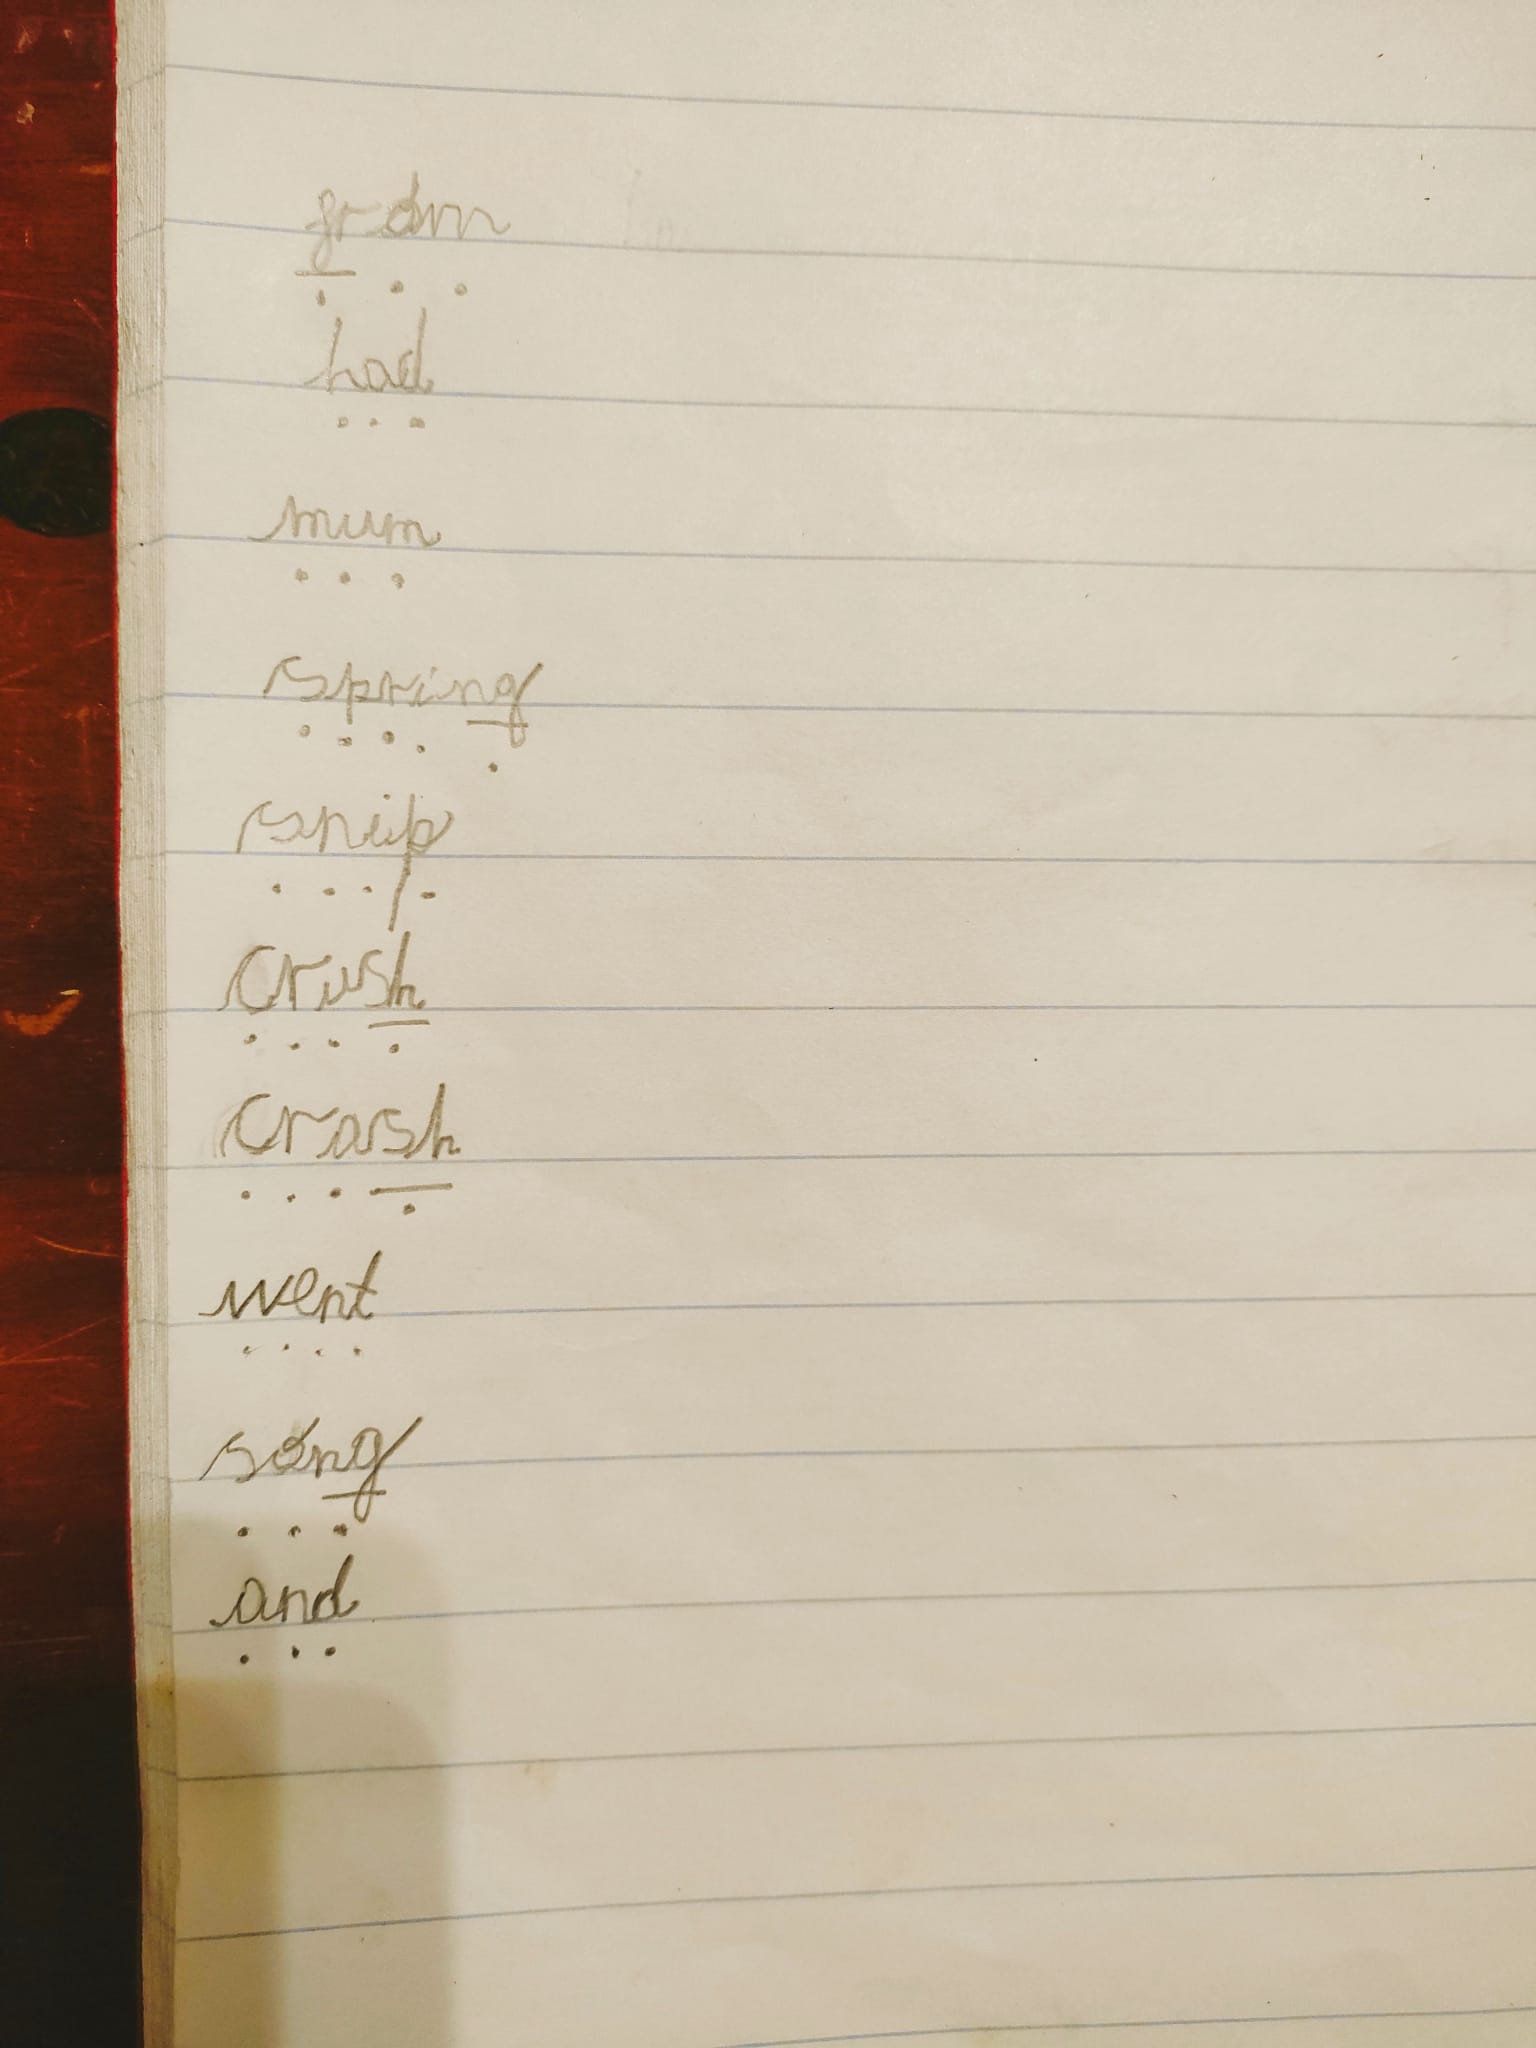 from
had
mum
spring
snip
crush
crash
went
song
and